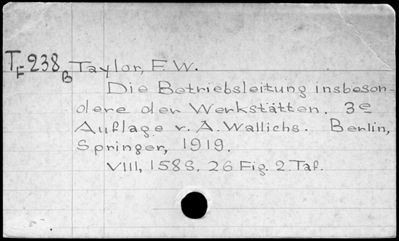 TF 238 B Taylor, F. W.
Die Betriebsleitung insbeson-
dere der Werkstätten. 3e
Auflage v. A. Wallichs. Berlin,
Springer, 1919.
VIII, 158 S. 26 Fig. 2 Taf.